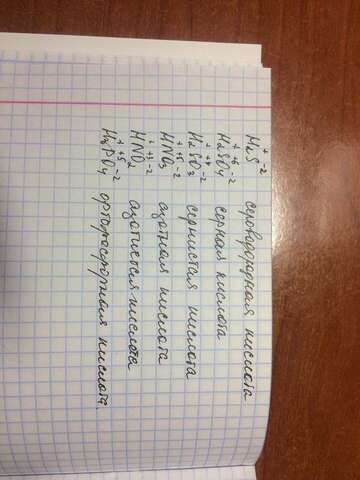 + -2
H₂S сероводородная кислота.
+ +6 -2
H₂SO₄ серная кислота
+ +4 -2
H₂SO₃ сернистая кислота
+ +5 -2
HNO₃ азотная кислота
+ +3 -2
HNO₂ азотистая кислота
+ +5 -2
H₃PO₄ ортофосфорная кислота.